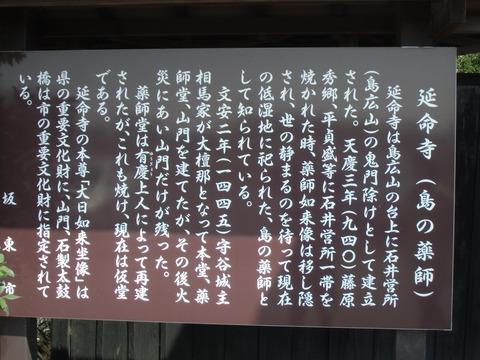 延命寺（島の薬師）
延命寺は島広山の台上に石井営所
（島広山）の鬼門除けとして建立
された。天慶三年（九四〇）藤原
秀郷、平貞盛等に石井営所一帯を
焼かれた時、薬師如来像は移し隠
され、世の静まるのを待って現在
の低湿地に祀られた、島の薬師と
して知られている。
文安二年（一四四五）守谷城主
相馬家が大檀那となって本堂、薬
師堂、山門を建てたが、その後火
災にあい山門だけが残った。
薬師堂は有慶上人によって再建
されたが、これも焼け、現在は仮堂
である。
延命寺の本尊「大日如来坐像」は
県の重要文化財に、山門、石製太鼓
橋は市の重要文化財に指定されて
いる。
坂東市